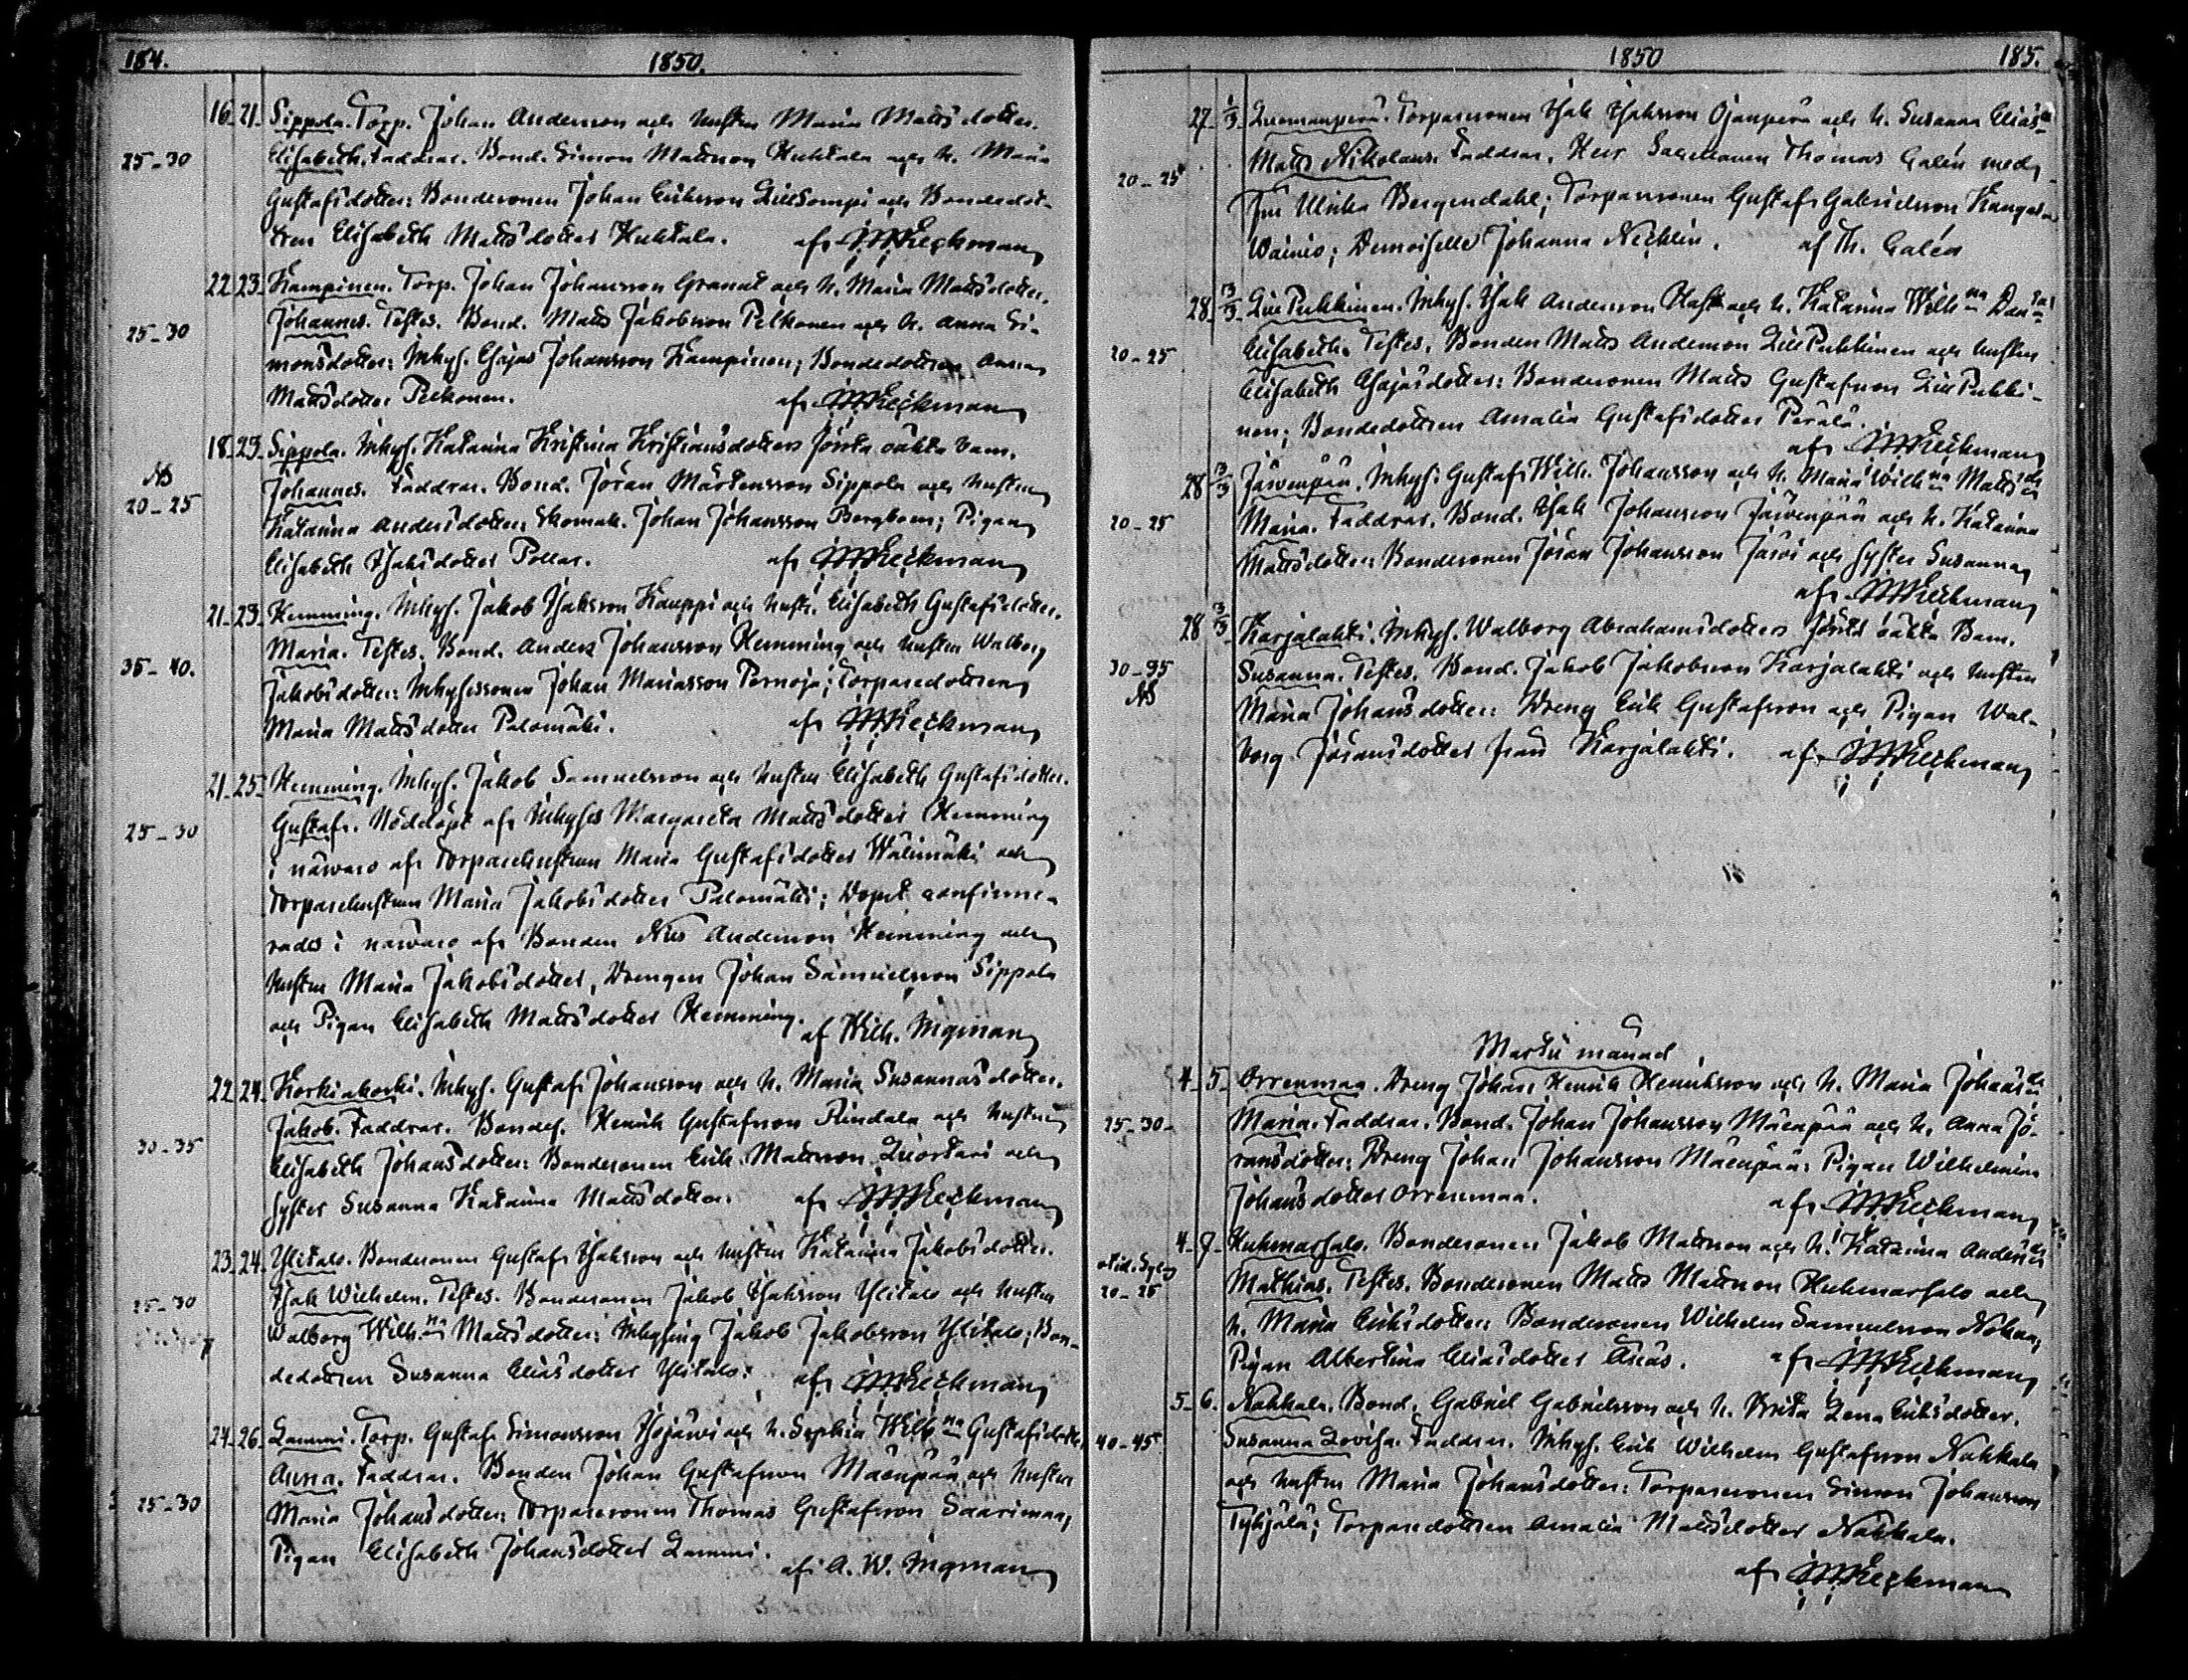 184. 1850.
16. 21. Sippola. Torp. Johan Andersson och hustru Maria Matts dotter.
25-30 Elisabeth. Faddrar. Bond. Simon Mattsson Huhtala och h. Maria
Gustafsdotter: Bondesonen Johan Eriksson Lillsompi och Bondedot-
tren Elisabeth Mattsdotter Huhtala. af
22. 23. Kampinen. Torp. Johan Johansson Granat och h. Maria Mattsdotter.
25-30 Johannes. Testes. Bond. Matts Jakobsson Pelkonen och h. Anna Si-
monsdotter: Inhys. Esajas Johansson Kampinen; Bondedottren Anna
Mattsdotter Pelkonen. af
18. 23. Sippola. Inhys. Katarina Kristina Kristiansdotters första oäkta barn.
20-25 Johannes. Faddrar. Bond. Jöran Mårtensson Sippola och hustru
Katarina Andersdotter: Skomak. Johan Johansson Bergbom; Pigan
Elisabeth Isaksdotter Pollar. af
21. 23. Hemming. Inhys. Jakob Isaksson Kauppi och hustr. Elisabeth Gustafsdotter.
35-40. Maria. Testes. Bond. Anders Johansson Hemming och hustru Walborg
Jakobsdotter: Inhysessonen Johan Mariasson Pernoja; Torparedottren
Maria Mattsdotter Palomäki. af
21. 25. Hemming. Inhys. Jakob Samuelsson och hustru Elisabeth Gustafsdotter.
25-30 Gustaf. Nöddöpt af Inhyses Margareta Mattsdotter Hemming
i närvaro af Torparehustrun Maria Gustafsdotter Wälimäki och
Torparehustrun Maria Jakobsdotter Palomäki; Dopet confirme-
rades i närvaro af Bonden Nils Andersson Hemming och
hustru Maria Jakobsdotter, Drengen Johan Samuelsson Sippola
och Pigan Elisabeth Mattsdotter Hemming. af Wilh. Ingman
22. 24. Korkiakoski. Inhys. Gustaf Johansson och h. Maria Susannasdotter.
30-35 Jakob. Faddrar. Bondes. Henrik Gustafsson Rindala och hustru
Elisabeth Johansdotter: Bondesonen Erik Mattsson och
syster Susanna Katarina Mattsdotter. af
23. 24. Ylitalo. Bondesonen Gustaf Isaksson och hustru Katarina Jakobsdotter.
25-30 Isak Wilhelm. Testes. Bondesonen Jakob Isaksson Ylitalo och hustru
Walborg Wilh:na Mattsdotter: Inhysing Jakob Jakobsson Ylitalo; Bon-
dedottren Susanna Eliasdotter Ylitalo. af
24. 26. Lammi. Torp. Gustaf Simonsson Isojärwi och h. Sophia Wilh:na Gustafsdotter,
25-30 Anna. Faddrar. Bonden Johan Gustafsson Mäenpää och hustru
Maria Johansdotter: Torparesonen Thomas Gustafsson Saarimaa,
Pigan Elisabeth Johansdotter Lammi. af A. W. Ingman
1850 185.
27. 1/3. Luomanperä. Torparesonen Isak Isaksson Ojanperä och h. Susanna Elias
20-25 Matts Nikolaus. Faddrar. Herr Sacellanen Thomas Galén med
Fru Ulrika Bergendahl; Torparesonen Gustaf Gabrielsson Kangas
Wainio; Demoiselle Johanna Necklin. af Th. Galén
28. 3/3. Lill Pukkinen. Inhys. Isak Andersson och h. Katarina Wilh:na Dan
20-25 Elisabeth. Testes. Bonden Matts Andersson Lill Pukkinen och hustru
Elisabeth Esajasdotter: Bondesonen Matts Gustafsson Lill Pukki-
nen; Bondedottren Amalia Gustafsdotter Perälä.
af
28 3/3 Järvenpää. Inhys. Gustaf Wilh. Johansson och h. Maria Wilh:na Matts dr
20-25 Maria. Faddrar. Bond. Isak Johansson Järvenpää och h. Katarina
Mattsdotter: Bondesonen Jöran Johansson och syster Susanna
af
28 3/3 Karjalahti. Inhys. Walborg Abrahamsdotters första oäkta Barn.
30-35 Susanna. Testes. Bond. Jakob Jakobsson Karjalahti och hustru
Maria Johansdotter: Dreng Erik Gustafsson och Pigan Wal-
borg Jöransdotter från Karjalahti. af
Martii månad
4. 5. Orrenmaa. Dreng Johan Henrik Henriksson och h. Maria Johans dr
25-30. Maria. Faddrar. Bond. Johan Johansson Mäenpää och h. Anna Jö-
ransdotter: Dreng Johan Johansson Mäenpää: Pigan Wilhelmina
Johansdotter Orrenmaa. af
4. 7. Huhmarsalo. Bondesonen Jakob Mattsson och h. Katarina Anders dr
20-25 Mathias. Testes. Bondesonen Matts Mattsson Huhmarsalo och
h. Maria Eriksdotter: Bondesonen Wilhelm Samuelsson
Pigan Albertina Eliasdotter Åsäs. af
5. 6. Nahkala. Bond. Gabriel Gabrielsson och h. Brita Lena Eriksdotter.
40-45 Susanna Lovisa. Faddrar. Inhys. Erik Wilhelm Gustafsson Nahkala
och hustru Maria Johansdotter: Torparesonen Simon Johansson
Tyhjälä; Torparedottren Amalia Mattsdotter Nahkala.
af